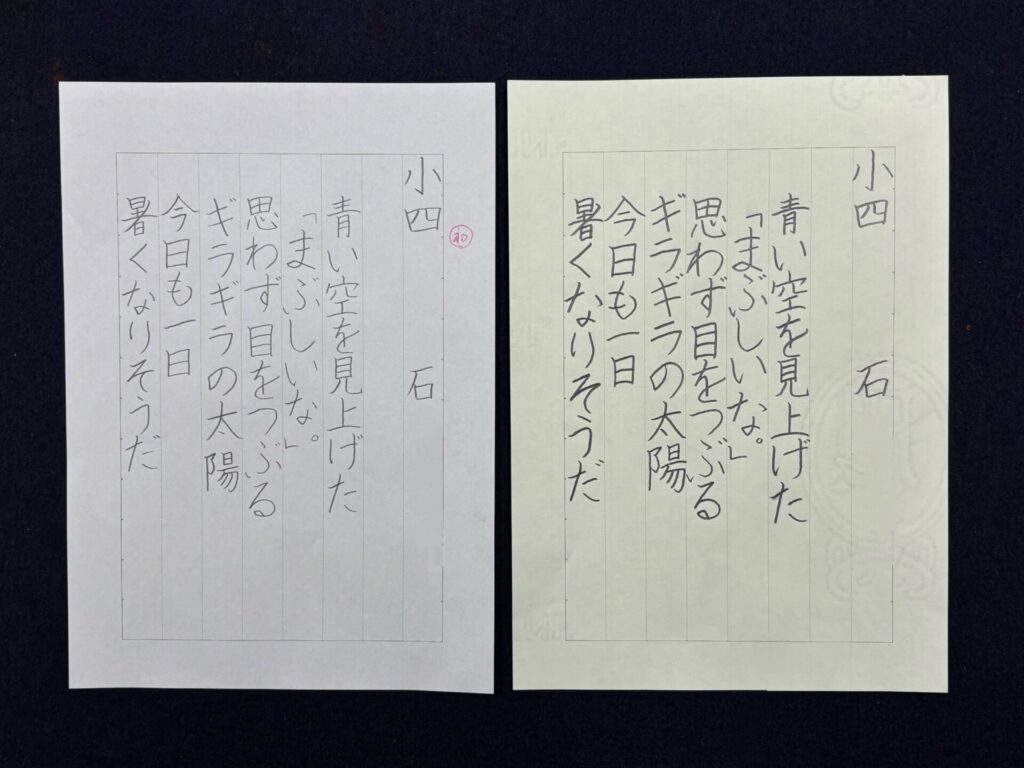 小四 石
青い空を見上げた
「まぶしいな。」
思わず目をつぶる
ギラギラの太陽
今日も一日
暑くなりそうだ
小四 石
青い空を見上げた
「まぶしいな。」
思わず目をつぶる
ギラギラの太陽
今日も一日
暑くなりそうだ